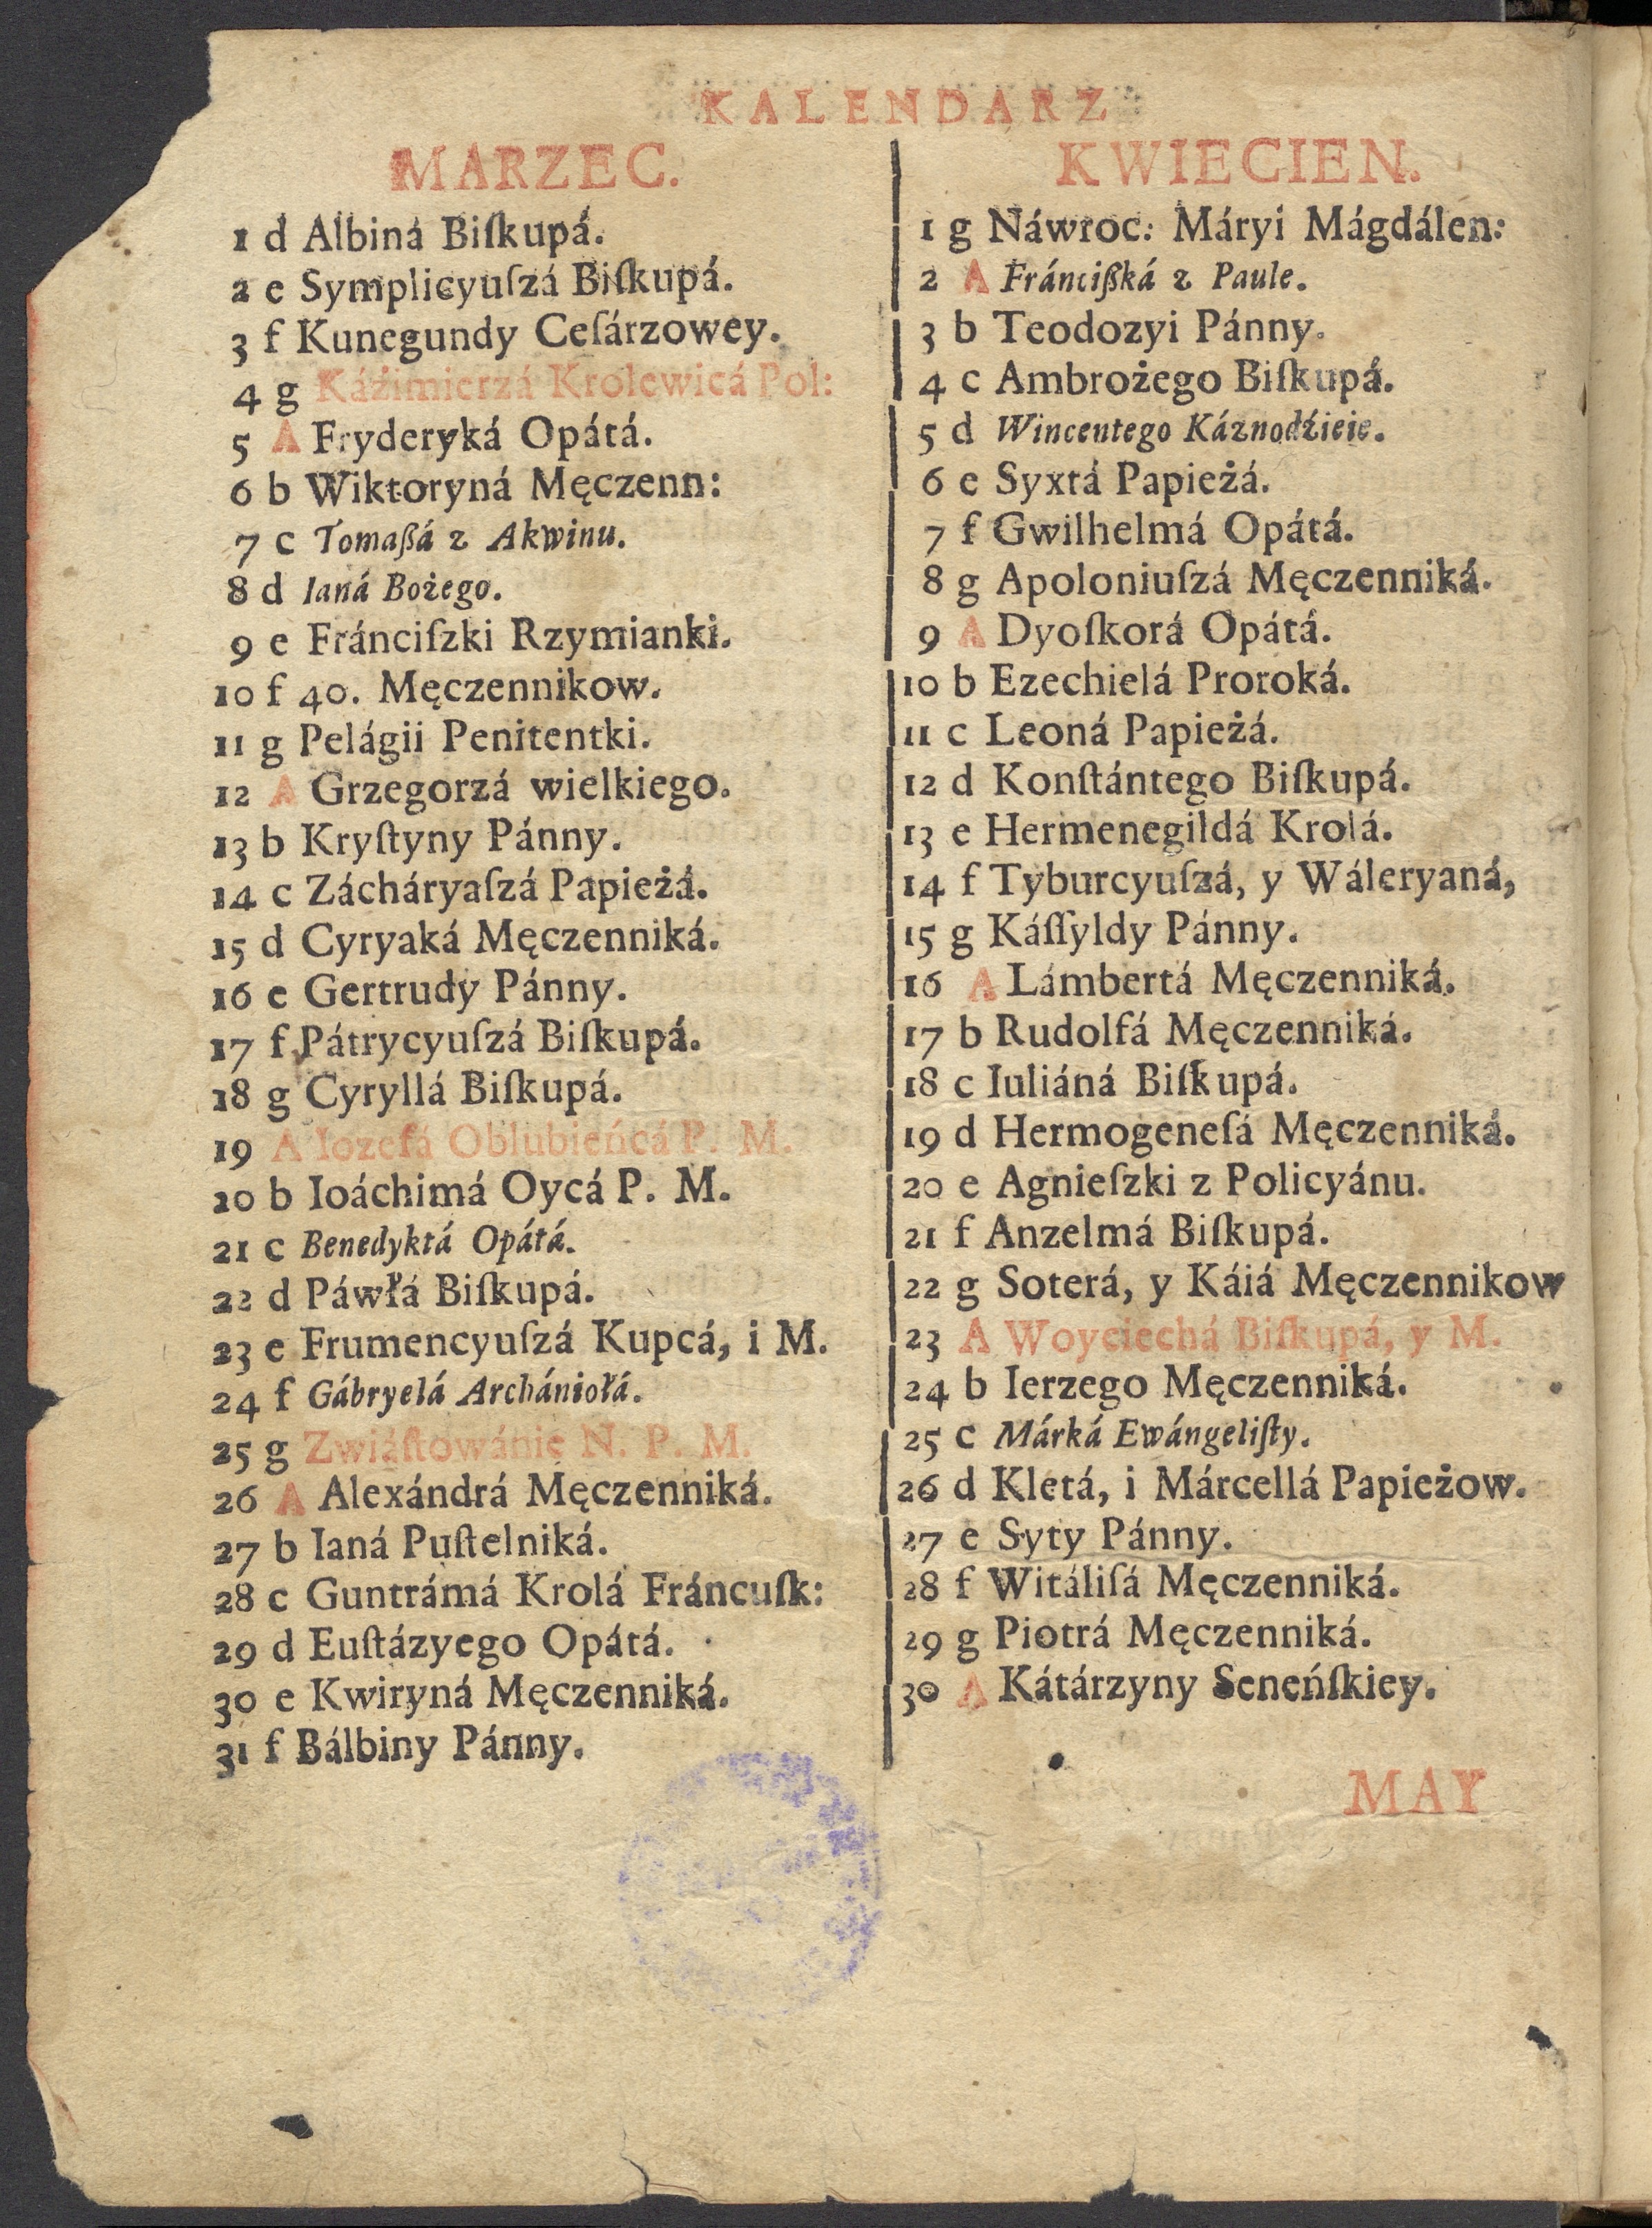 KALENDARZ
MARZEC.
1 d Albiná Biſkupá.
2 e Symplicyuſzá Biſkupá.
3 f Kunegundy Ceſárzowey.
4 g Káźimierzá Krolewicá Pol:
5 A Fryderyká Opátá.
6 b Wiktoryná Męczenn:
7 c Tomaßá z Akwinu.
8 d Ianá Bożego.
9 e Fránciſzki Rzymianki.
10 f 40. Męczennikow.
11 g Pelágii Penitentki.
12 A Grzegorzá wielkiego.
13 b Kryſtyny Pánny.
14 c Zácháryaſzá Papieżá.
15 d Cyryaká Męczenniká.
16 e Gertrudy Pánny.
17 f Pátrycyuſzá Biſkupá.
18 g Cyryllá Biſkupá.
19 A Iozefá Oblubieńcá P. M.
20 b Ioáchimá Oycá P. M.
21 c Benedyktá Opátá.
22 d Páwłá Biſkupá.
23 e Frumencyuſzá Kupcá, i M.
24 f Gábryelá Archániołá.
25 g Zwiáſtowánie N. P. M.
26 A Alexándrá Męczenniká.
27 b Ianá Puſtelniká.
28 c Guntrámá Krolá Fráncuſk:
29 d Euſtázyego Opátá.
30 e Kwiryná Męczenniká.
31 f Bálbiny Pánny.
KWIECIEN.
1 g Náwroc: Máryi Mágdálen:
2 A Fráncißká z Paule.
3 b Teodozyi Pánny.
4 c Ambrożego Biſkupá.
5 d Wincentego Káznodźieie.
6 e Syxtá Papieżá.
7 f Gwilhelmá Opátá.
8 g Apoloniuſzá Męczenniká.
9 A Dyoſkorá Opátá.
10 b Ezechielá Proroká.
11 c Leoná Papieżá.
12 d Konſtántego Biſkupá.
13 e Hermenegildá Krolá.
14 f Tyburcyuſzá, y Wáleryaná,
15 g Káſſyldy Pánny.
16 A Lámbertá Męczenniká.
17 b Rudolfá Męczenniká.
18 c Iuliáná Biſkupá.
19 d Hermogeneſá Męczenniká.
20 e Agnieſzki z Policyánu.
21 f Anzelmá Biſkupá.
22 g Soterá, y Káiá Męczennikow
23 A Woyciechá Biſkupá, y M.
24 b Ierzego Męczenniká.
25 c Márká Ewángeliſty.
26 d Kletá, i Márcellá Papieżow.
27 e Syty Pánny.
28 f Witáliſá Męczenniká.
29 g Piotrá Męczenniká.
30 A Kátárzyny Seneńſkiey.
MAY